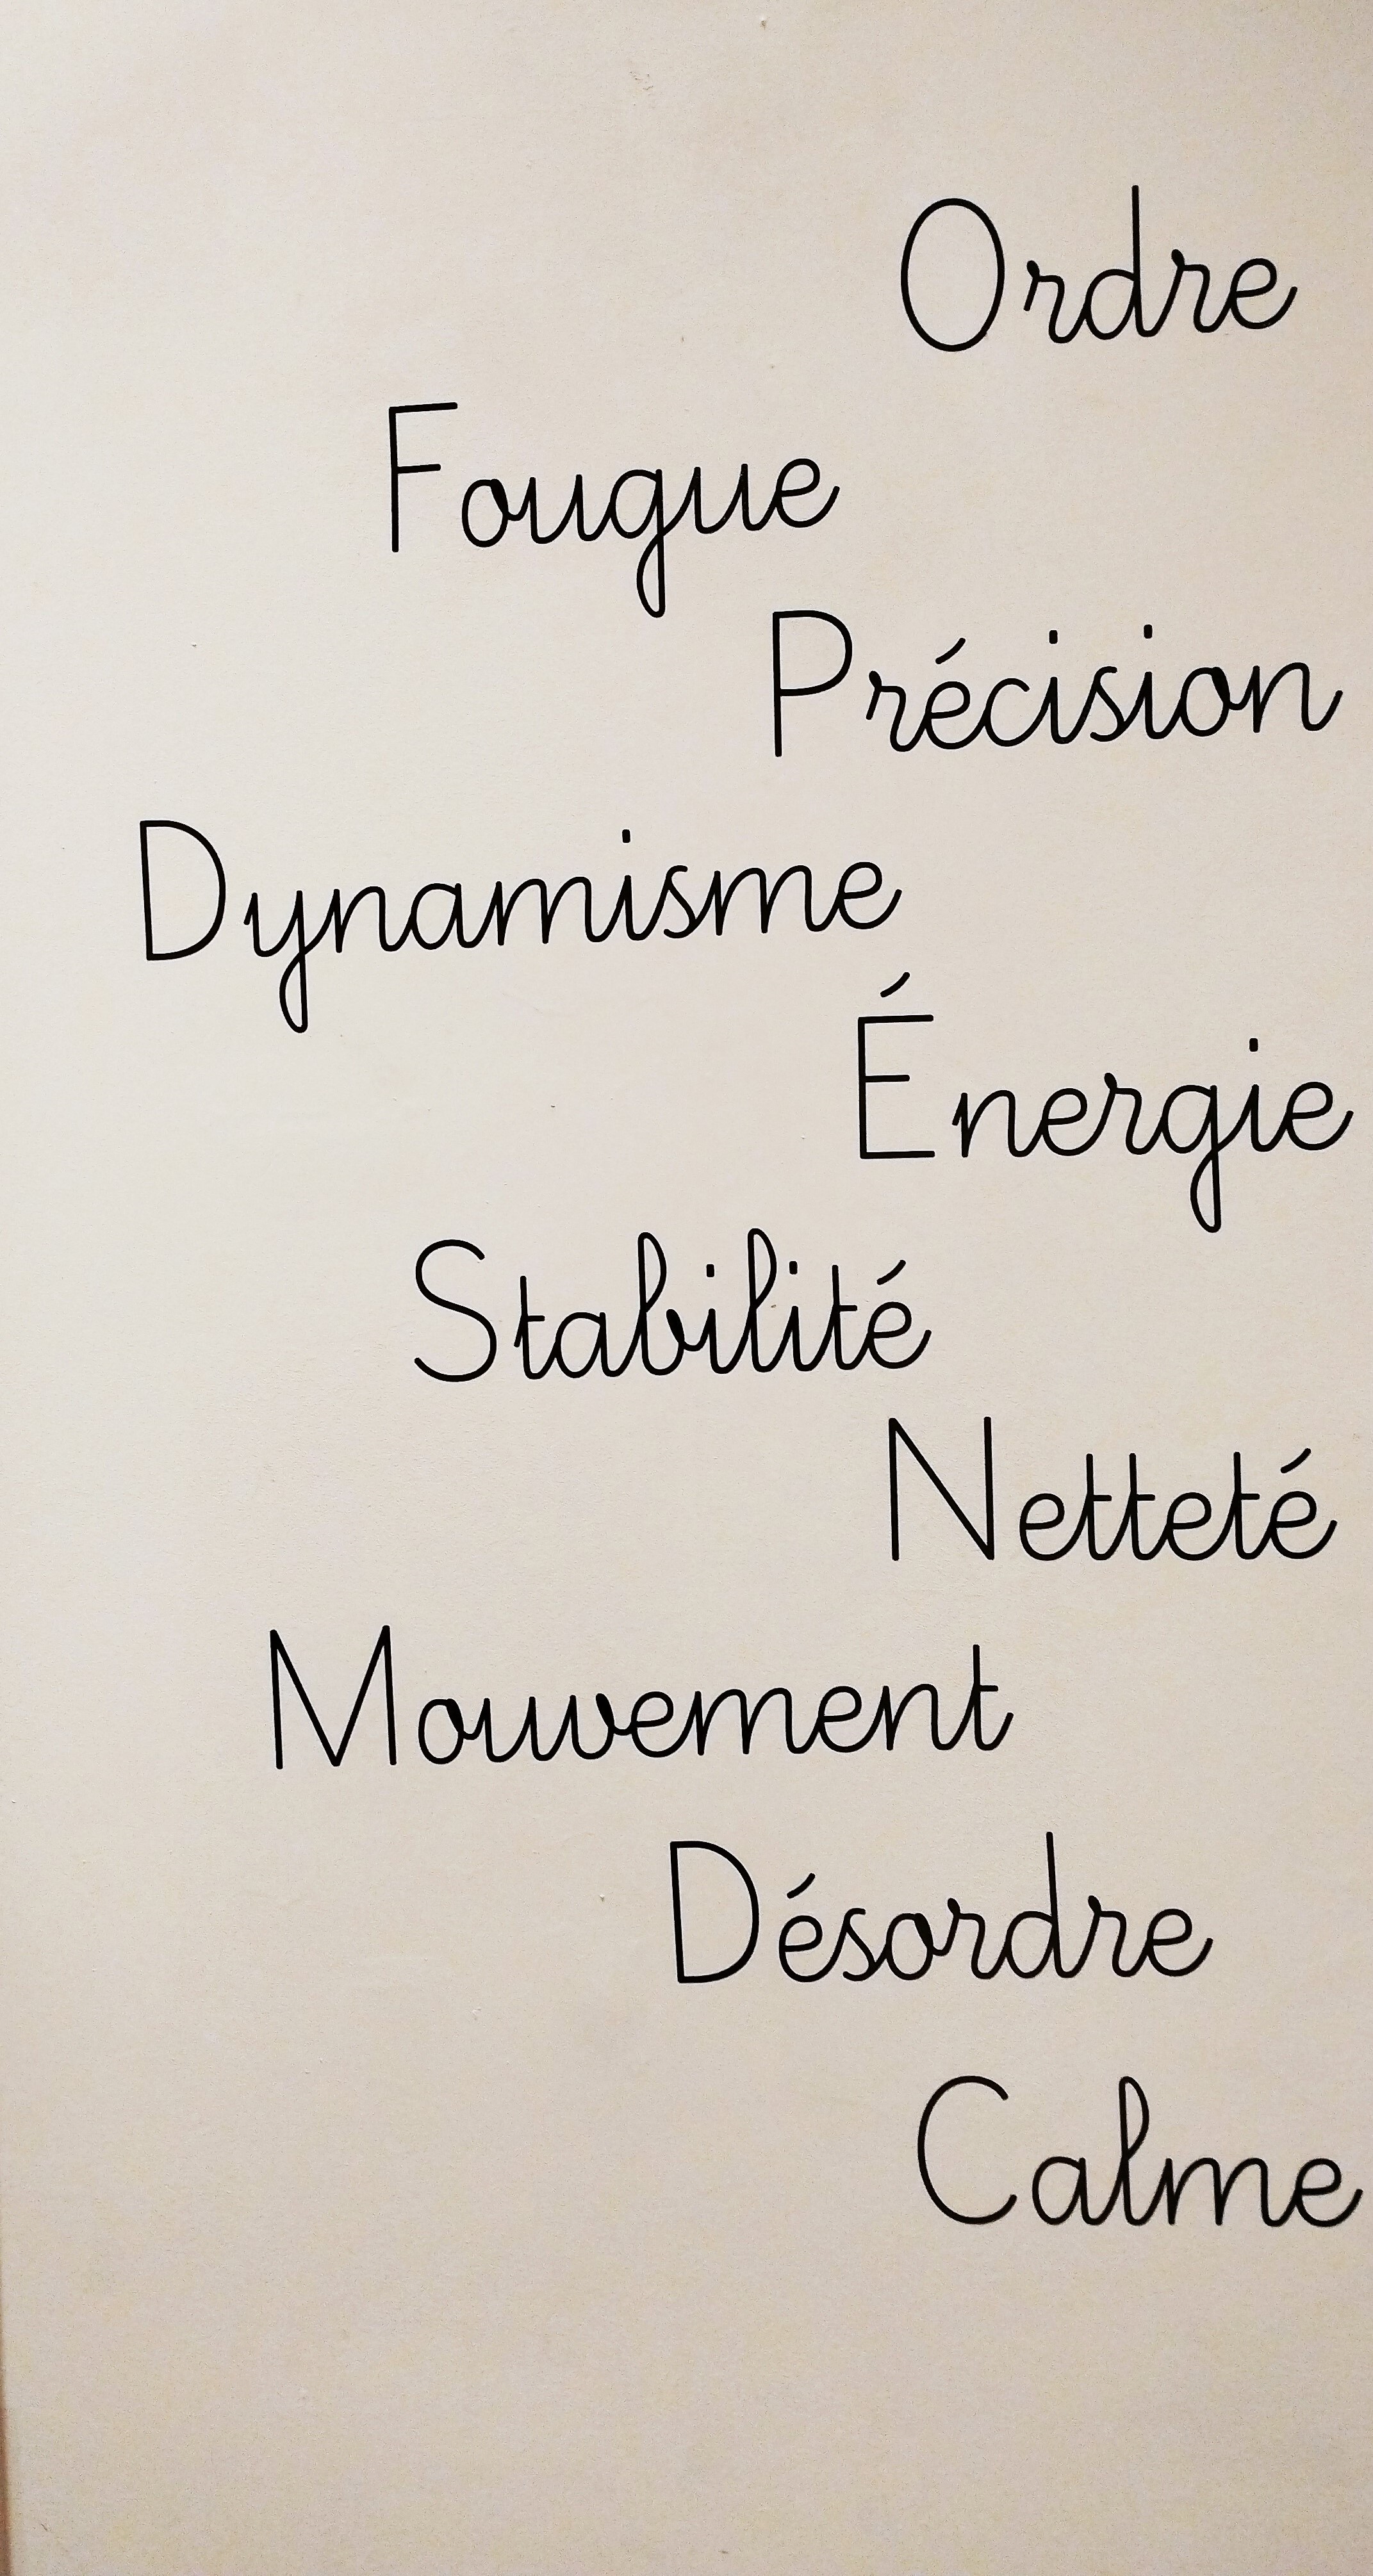 Ordre
Fougue
Précision
Dynamisme
Énergie
Stabilité
Netteté
Mouvement
Désordre
Calme